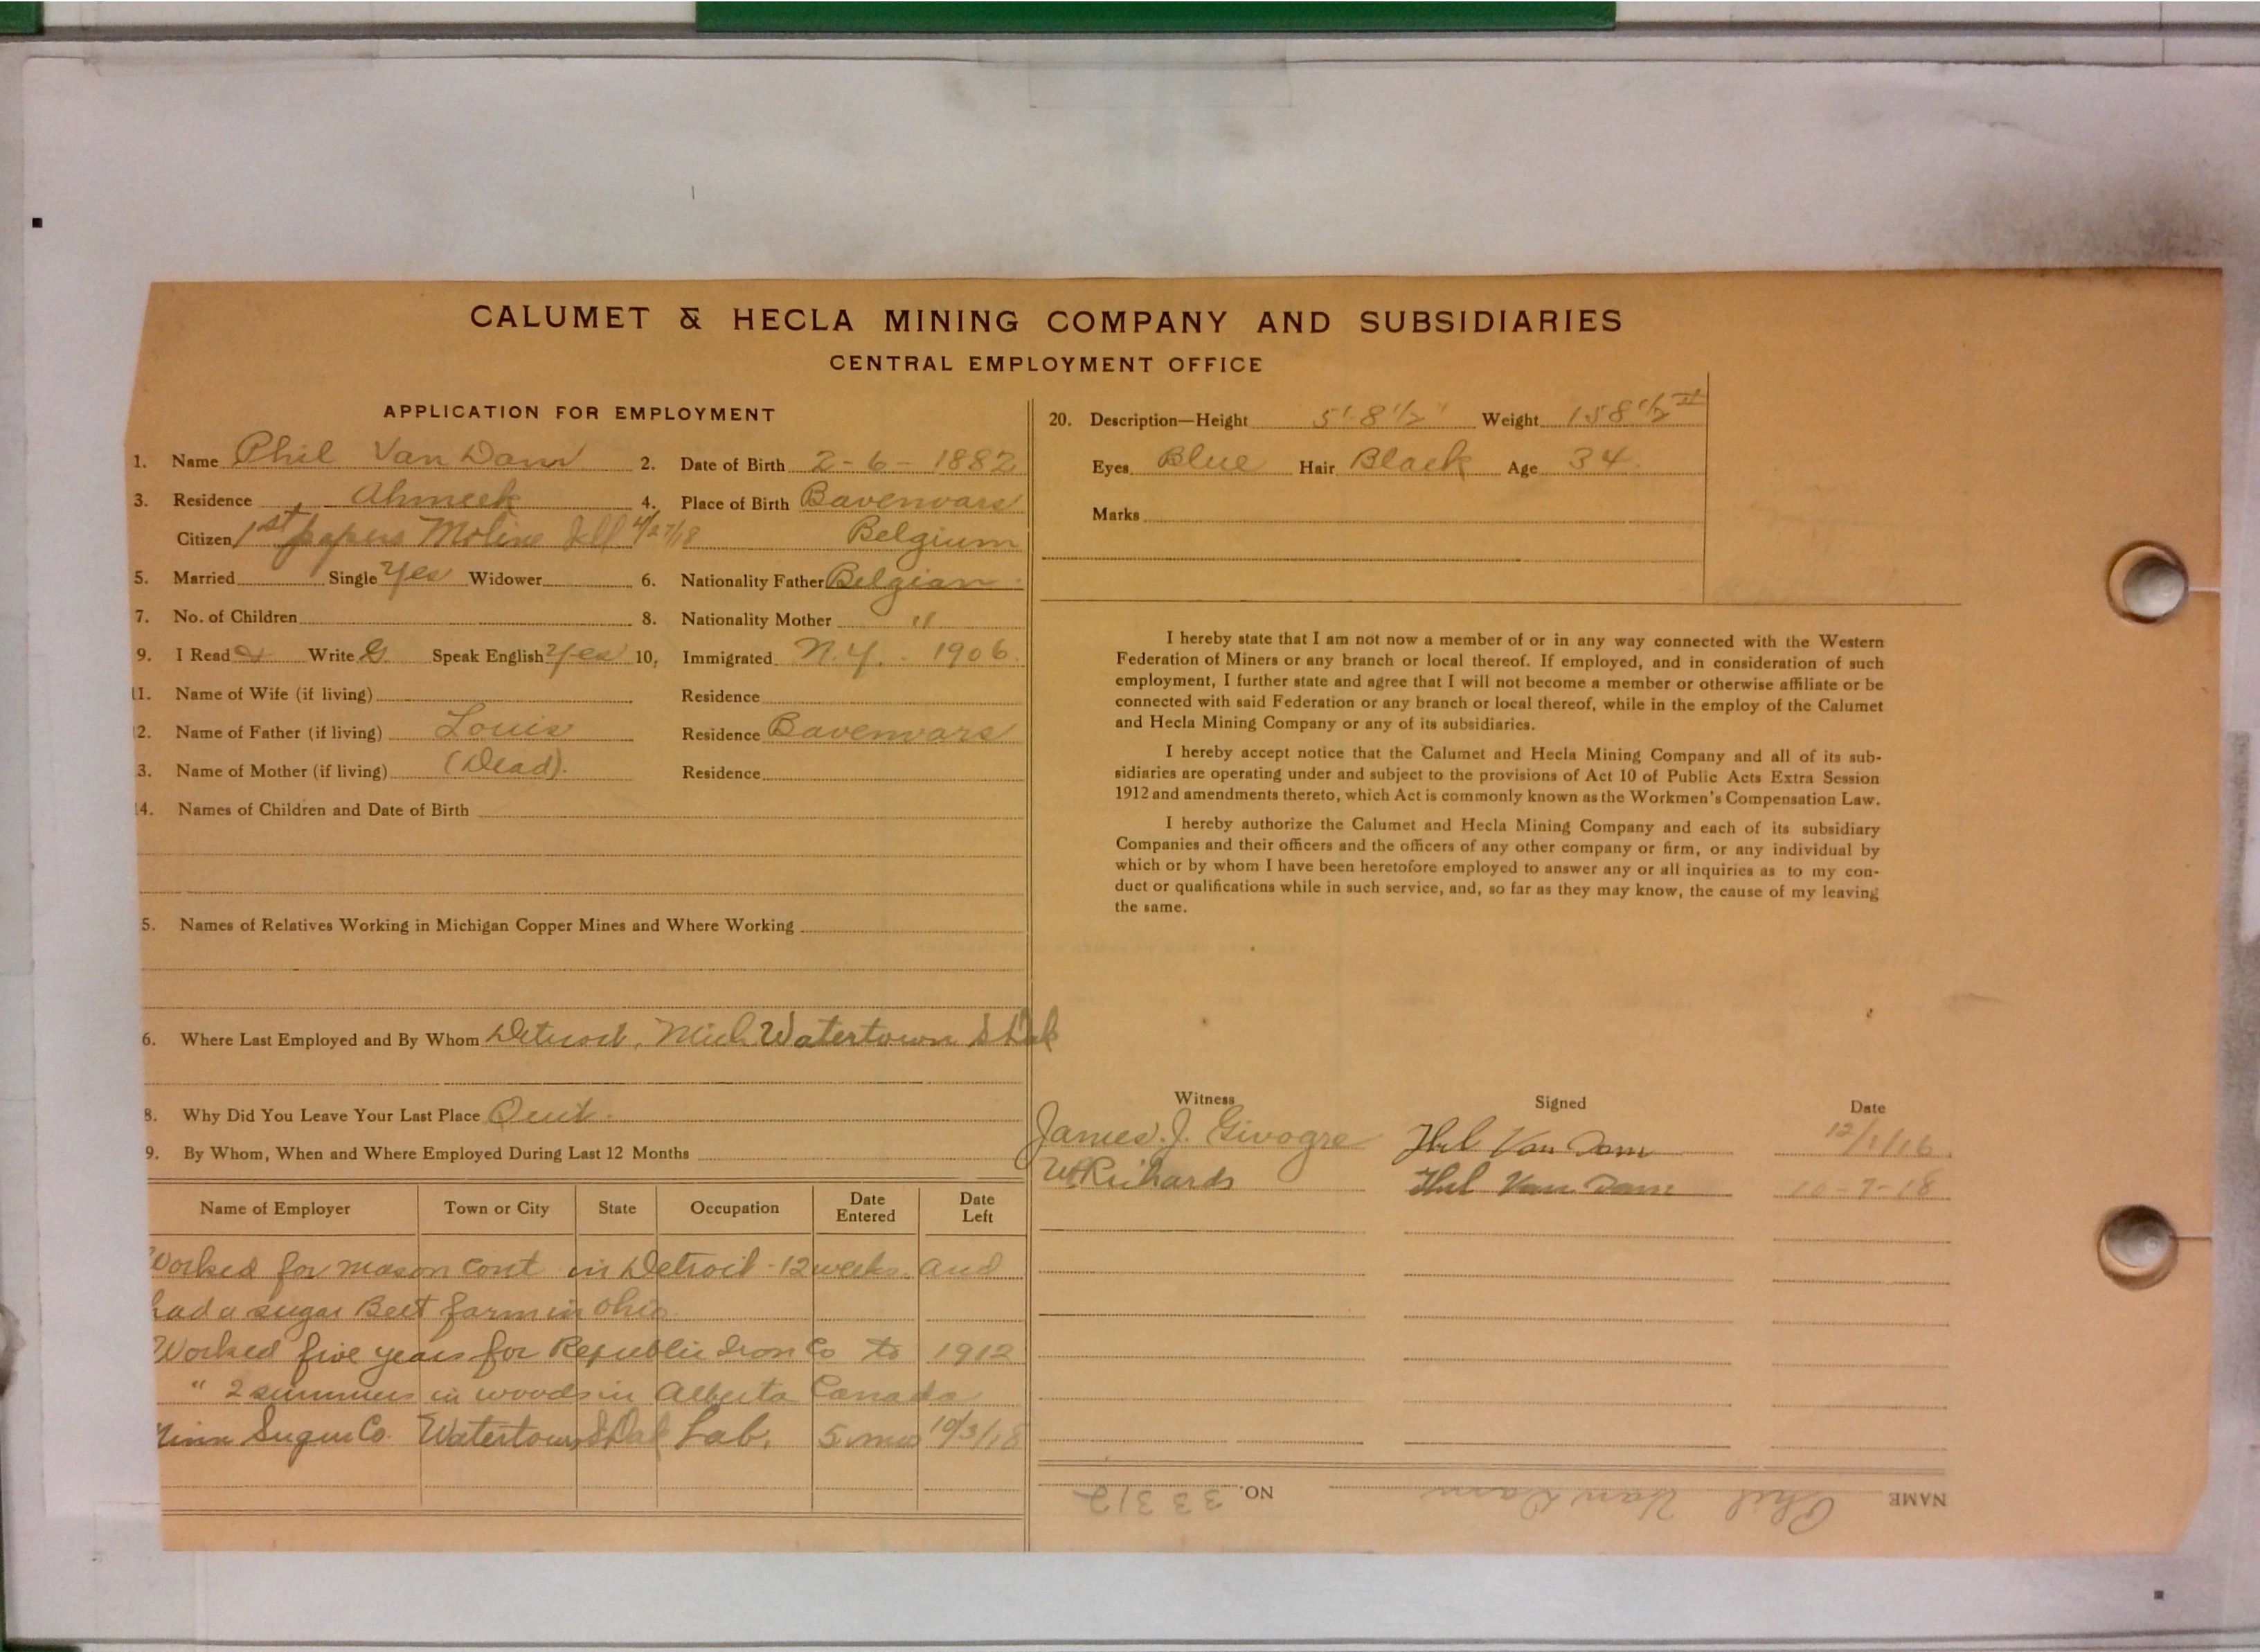 CALUMET & HECLA MINING COMPANY AND SUBSIDIARIES
CENTRAL EMPLOYMENT OFFICE
APPLICATION FOR EMPLOYMENT
1. Name Phil Van Dam 2. Date of Birth 2-6-1882
3. Residence Ahmeek 4. Place of Birth Bavenvars
Citizen 1st papers Moline Ill 4/27/18 Belgium
5. Married Single Yes Widower 6. Nationality Father Belgian
7. No. of Children 8. Nationality Mother "
9. I Read & Write G. Speak English Yes 10. Immigrated N.Y. - 1906
11. Name of Wife (if living) Residence
2. Name of Father (if living) Louis Residence Bavenvars
3. Name of Mother (if living) (Dead). Residence
14. Names of Children and Date of Birth
5. Names of Relatives Working in Michigan Copper Mines and Where Working
6. Where Last Employed and By Whom Detroit, Mich Watertown S Dak
8. Why Did You Leave Your Last Place Quit.
9. By Whom, When and Where Employed During Last 12 Months
Name of Employer Town or City State Occupation Date Entered Date Left
Worked for mason cont in Detroit - 12 weeks. and
had a sugar Beet farm in Ohio.
Worked five years for Republic Iron Co to 1912
" 2 summers in woods in Alberta Canada
Minn Sugar Co. Watertown S Dak Lab. 5 mos 10/3/18
20. Description—Height 5'-8 1/2" Weight 158 1/2 #
Eyes Blue Hair Black Age 34.
Marks
I hereby state that I am not now a member of or in any way connected with the Western
Federation of Miners or any branch or local thereof. If employed, and in consideration of such
employment, I further state and agree that I will not become a member or otherwise affiliate or be
connected with said Federation or any branch or local thereof, while in the employ of the Calumet
and Hecla Mining Company or any of its subsidiaries.
I hereby accept notice that the Calumet and Hecla Mining Company and all of its sub-
sidiaries are operating under and subject to the provisions of Act 10 of Public Acts Extra Session
1912 and amendments thereto, which Act is commonly known as the Workmen's Compensation Law.
I hereby authorize the Calumet and Hecla Mining Company and each of its subsidiary
Companies and their officers and the officers of any other company or firm, or any individual by
which or by whom I have been heretofore employed to answer any or all inquiries as to my con-
duct or qualifications while in such service, and, so far as they may know, the cause of my leaving
the same.
Witness Signed Date
James. J. Givogre Phil Van Dam 12/1/16.
W Richards Phil Van Dam 10-7-18
NAME Phil Van Dam NO. 33312